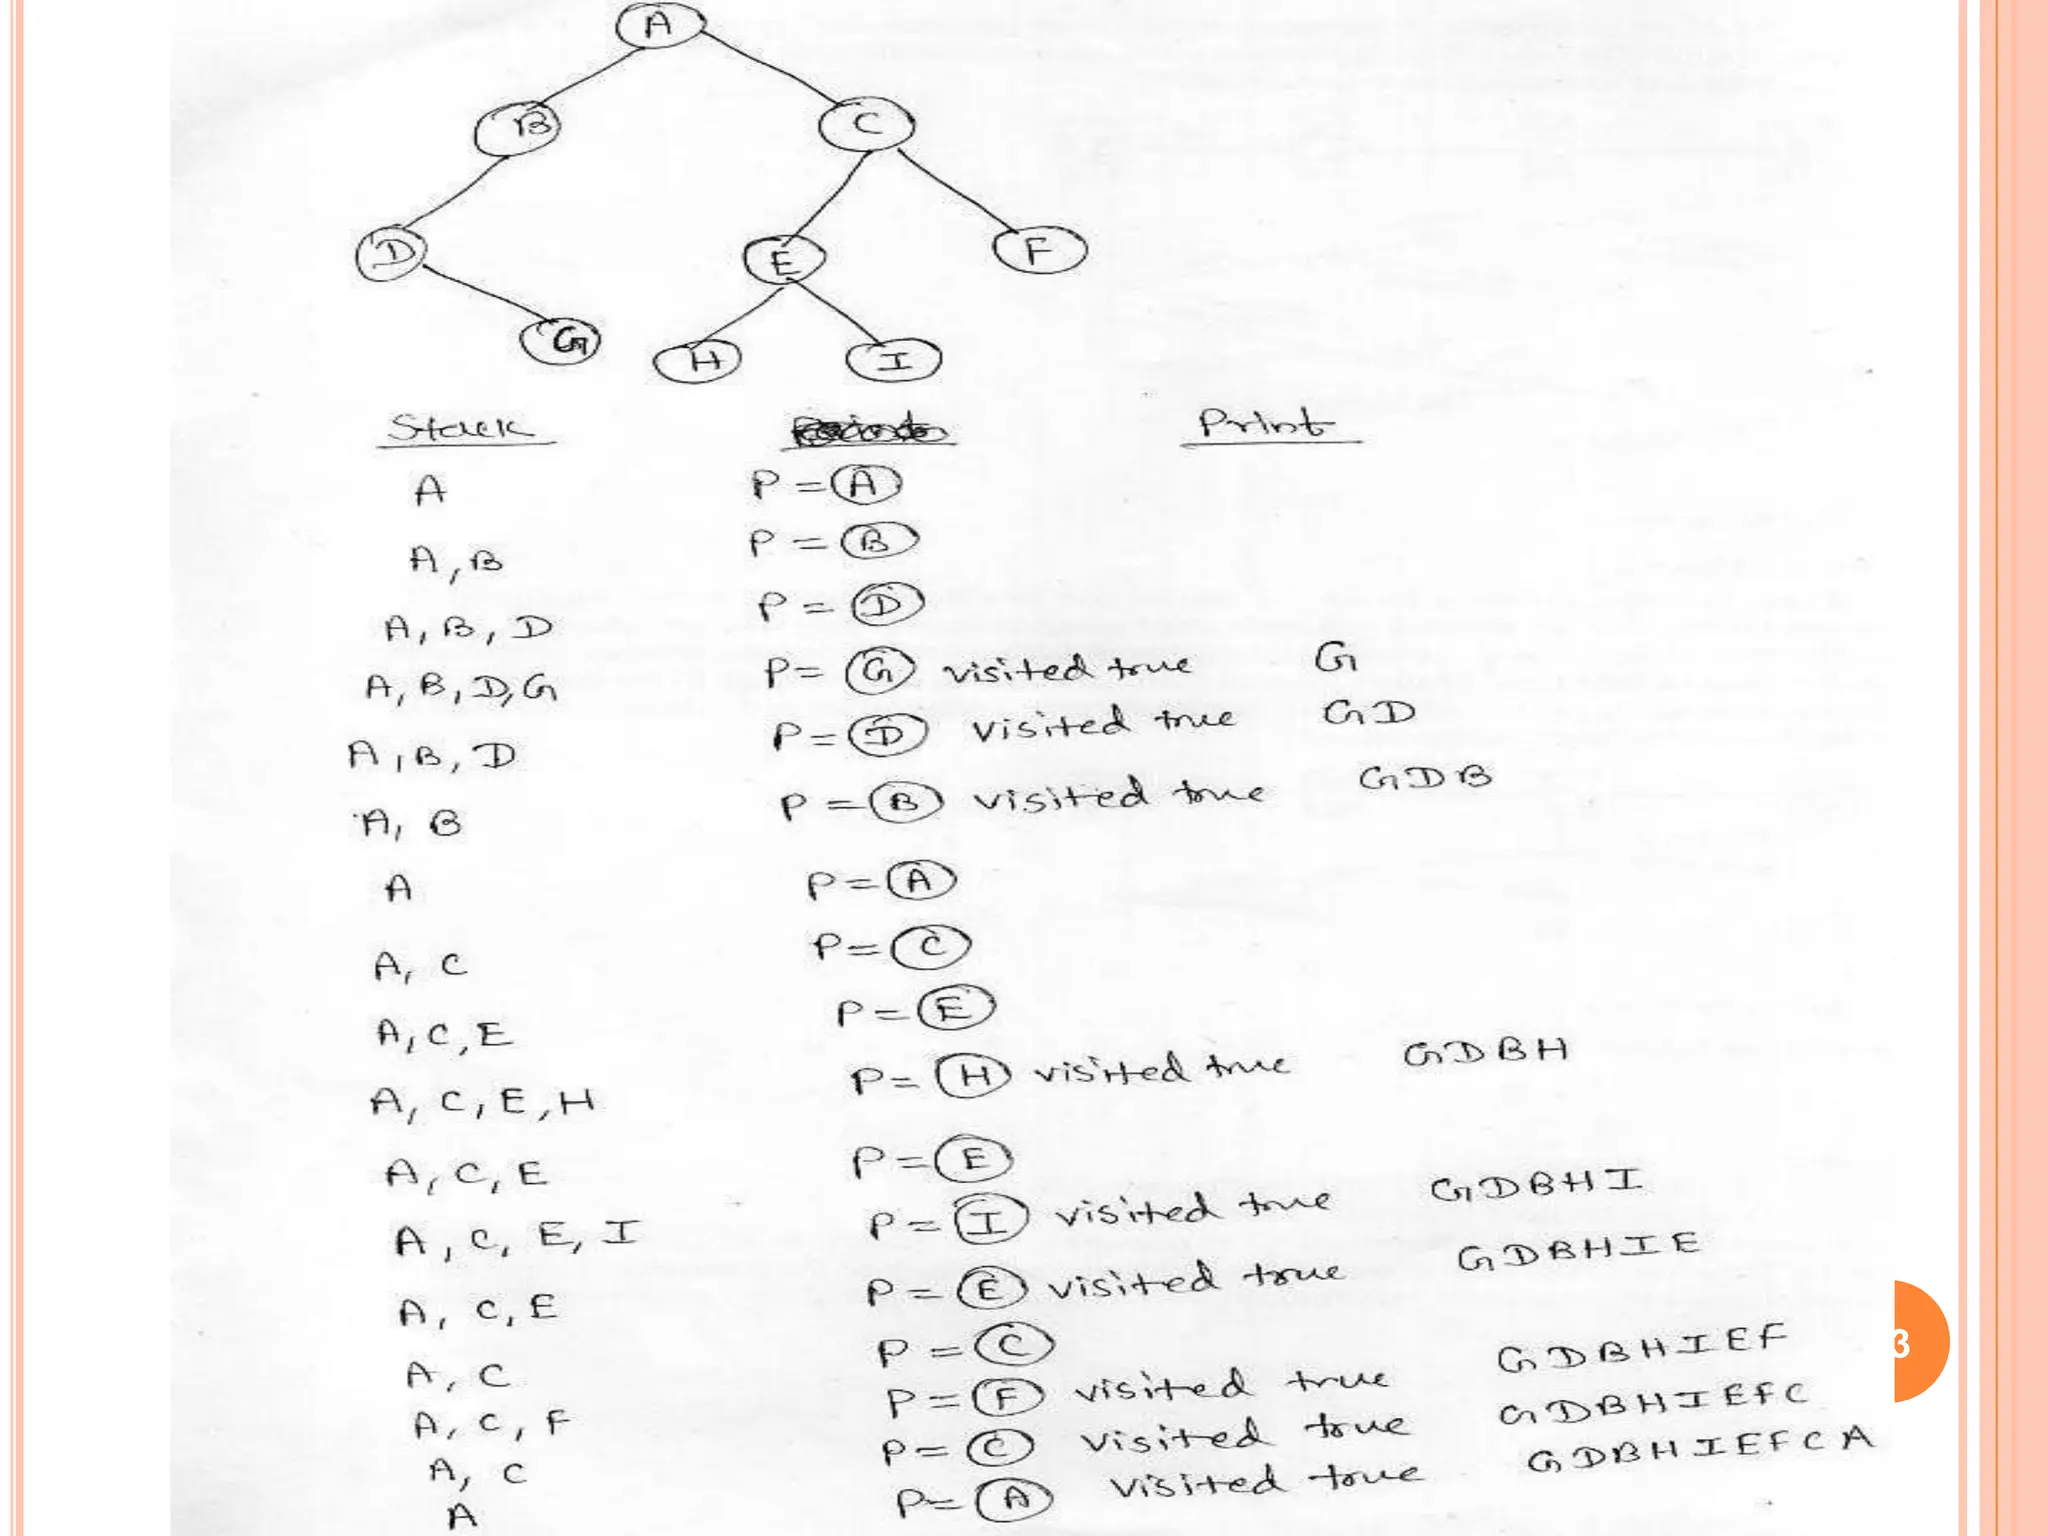 A
B C
D E F
G H I
Stack Print
A P = A
A, B P = B
A, B, D P = D
A, B, D, G P = G visited true G
A, B, D P = D visited true GD
A, B P = B visited true GDB
A P = A
A, C P = C
A, C, E P = E
A, C, E, H P = H visited true GDBH
A, C, E P = E
A, C, E, I P = I visited true GDBHI
A, C, E P = E visited true GDBHIE
A, C P = C
A, C, F P = F visited true GDBHIEF
A, C P = C visited true GDBHIEFC
A P = A visited true GDBHIEFCA
3